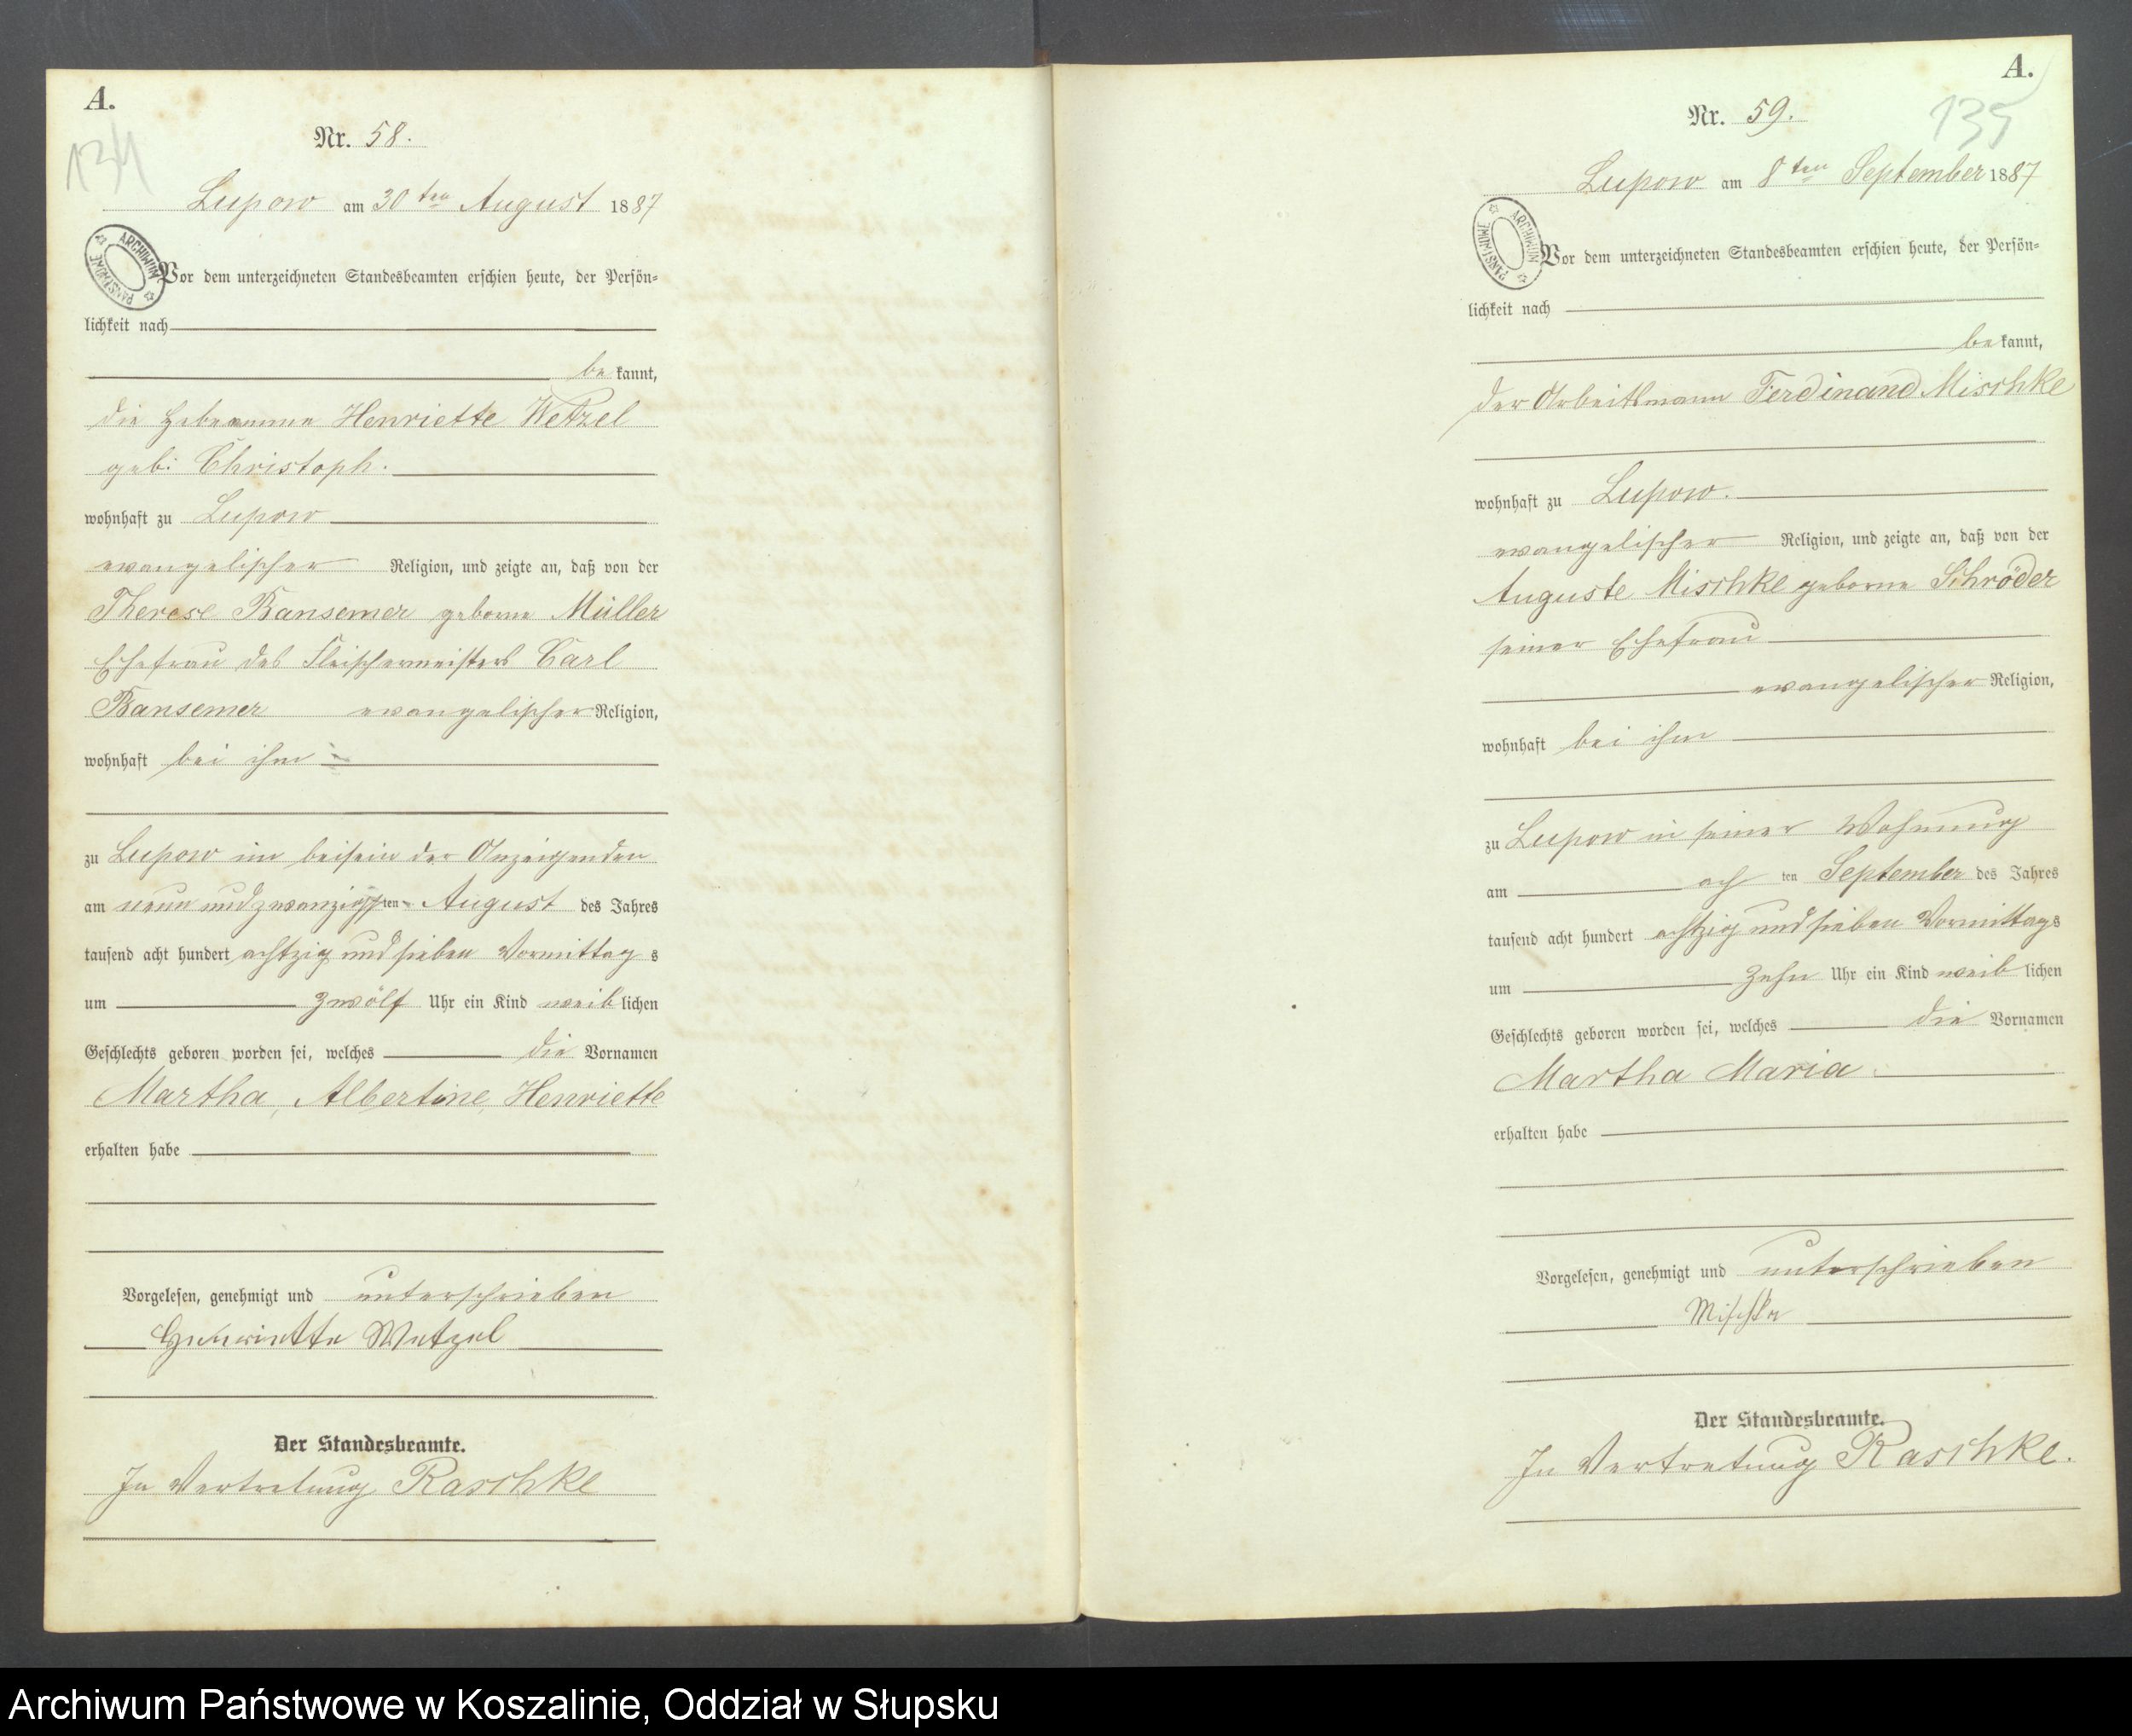 A.
134
Nr. 58.
Lupow am 30ten August 1887
ARCHIWUM PAŃSTWOWE
Vor dem unterzeichneten Standesbeamten erschien heute, der Persön=
lichkeit nach
be kannt,
die Hebeamme Henriette Wetzel
geb: Christoph.
wohnhaft zu Lupow
evangelischer Religion, und zeigte an, daß von der
Therese Bansemer geborne Müller
Ehefrau des Fleischermeisters Carl
Bansemer evangelischer Religion,
wohnhaft bei ihm
zu Lupow im beisein der Anzeigenden
am neun und zwanzigsten August des Jahres
tausend acht hundert achtzig und sieben Vormittag s
um zwölf Uhr ein Kind weib lichen
Geschlechts geboren worden sei, welches die Vornamen
Martha, Albertine, Henriette
erhalten habe
Vorgelesen, genehmigt und unterschrieben
Henriette Wetzel
Der Standesbeamte.
In Vertretung Raschke
A.
135
Nr. 59.
Lupow am 8ten September 1887
ARCHIWUM PAŃSTWOWE
Vor dem unterzeichneten Standesbeamten erschien heute, der Persön=
lichkeit nach
be kannt,
der Arbeitsmann Ferdinand Mischke
wohnhaft zu Lupow.
evangelischer Religion, und zeigte an, daß von der
Auguste Mischke geborne Schröder
seiner Ehefrau
evangelischer Religion,
wohnhaft bei ihm
zu Lupow in seiner Wohnung
am ach ten September des Jahres
tausend acht hundert achtzig und sieben Vormittags
um zehn Uhr ein Kind weib lichen
Geschlechts geboren worden sei, welches die Vornamen
Martha Maria
erhalten habe
Vorgelesen, genehmigt und unterschrieben
Mischke
Der Standesbeamte.
In Vertretung Raschke.
Archiwum Państwowe w Koszalinie, Oddział w Słupsku